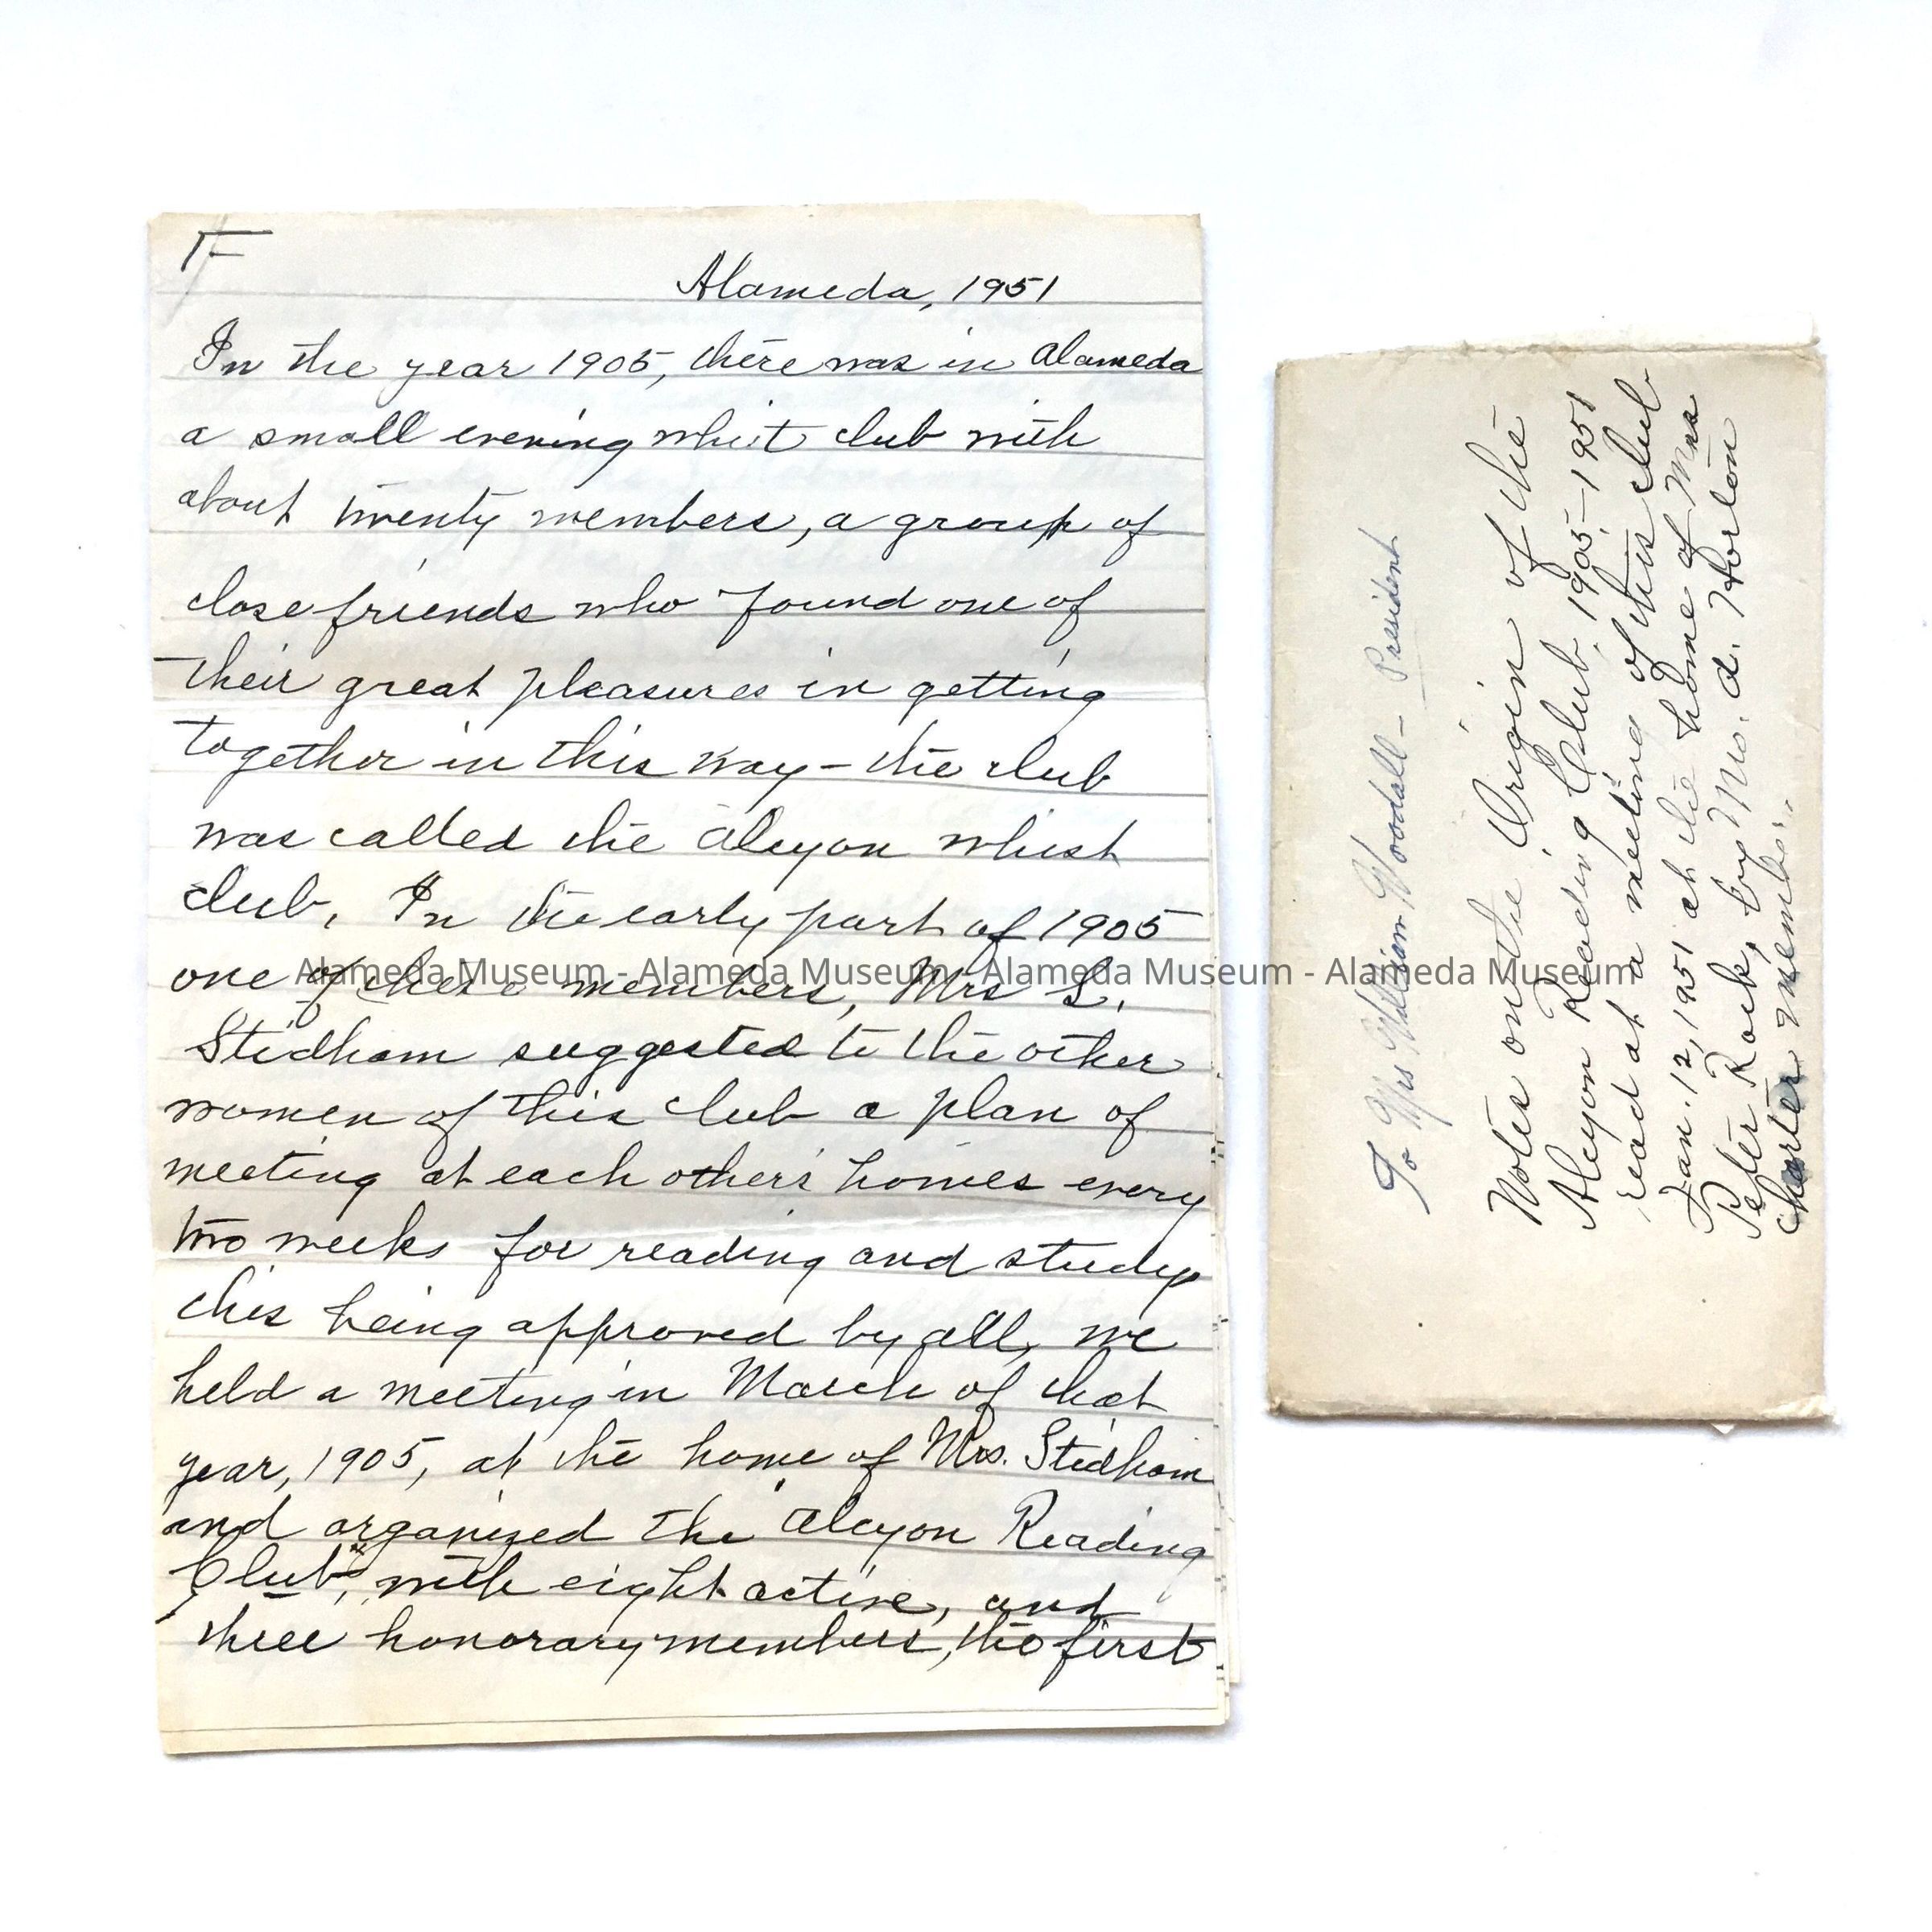 1-
Alameda, 1951
In the year 1905, there was in Alameda
a small evening whist club with
about twenty members, a group of
close friends who found one of
their great pleasures in getting
together in this way - the club
was called the Alcyon whist
club. In the early part of 1905
one of these members, Mrs S.
Stidham suggested to the other
women of this club a plan of
meeting at each other's homes every
two weeks for reading and study
this being approved by all, we
held a meeting in March of that
year, 1905, at the home of Mrs. Stidham
and organized the "Alcyon Reading
Club", with eight active, and
three honorary members, the first
To Mrs William Woodall - President
Notes on the Origin of the
Alcyon Reading Club, 1905-1951
read at a meeting of this club
Jan. 12, 1951 at the home of Mrs
Peter Rock, by Mrs. A. Horton
charter member.
Alameda Museum - Alameda Museum - Alameda Museum - Alameda Museum